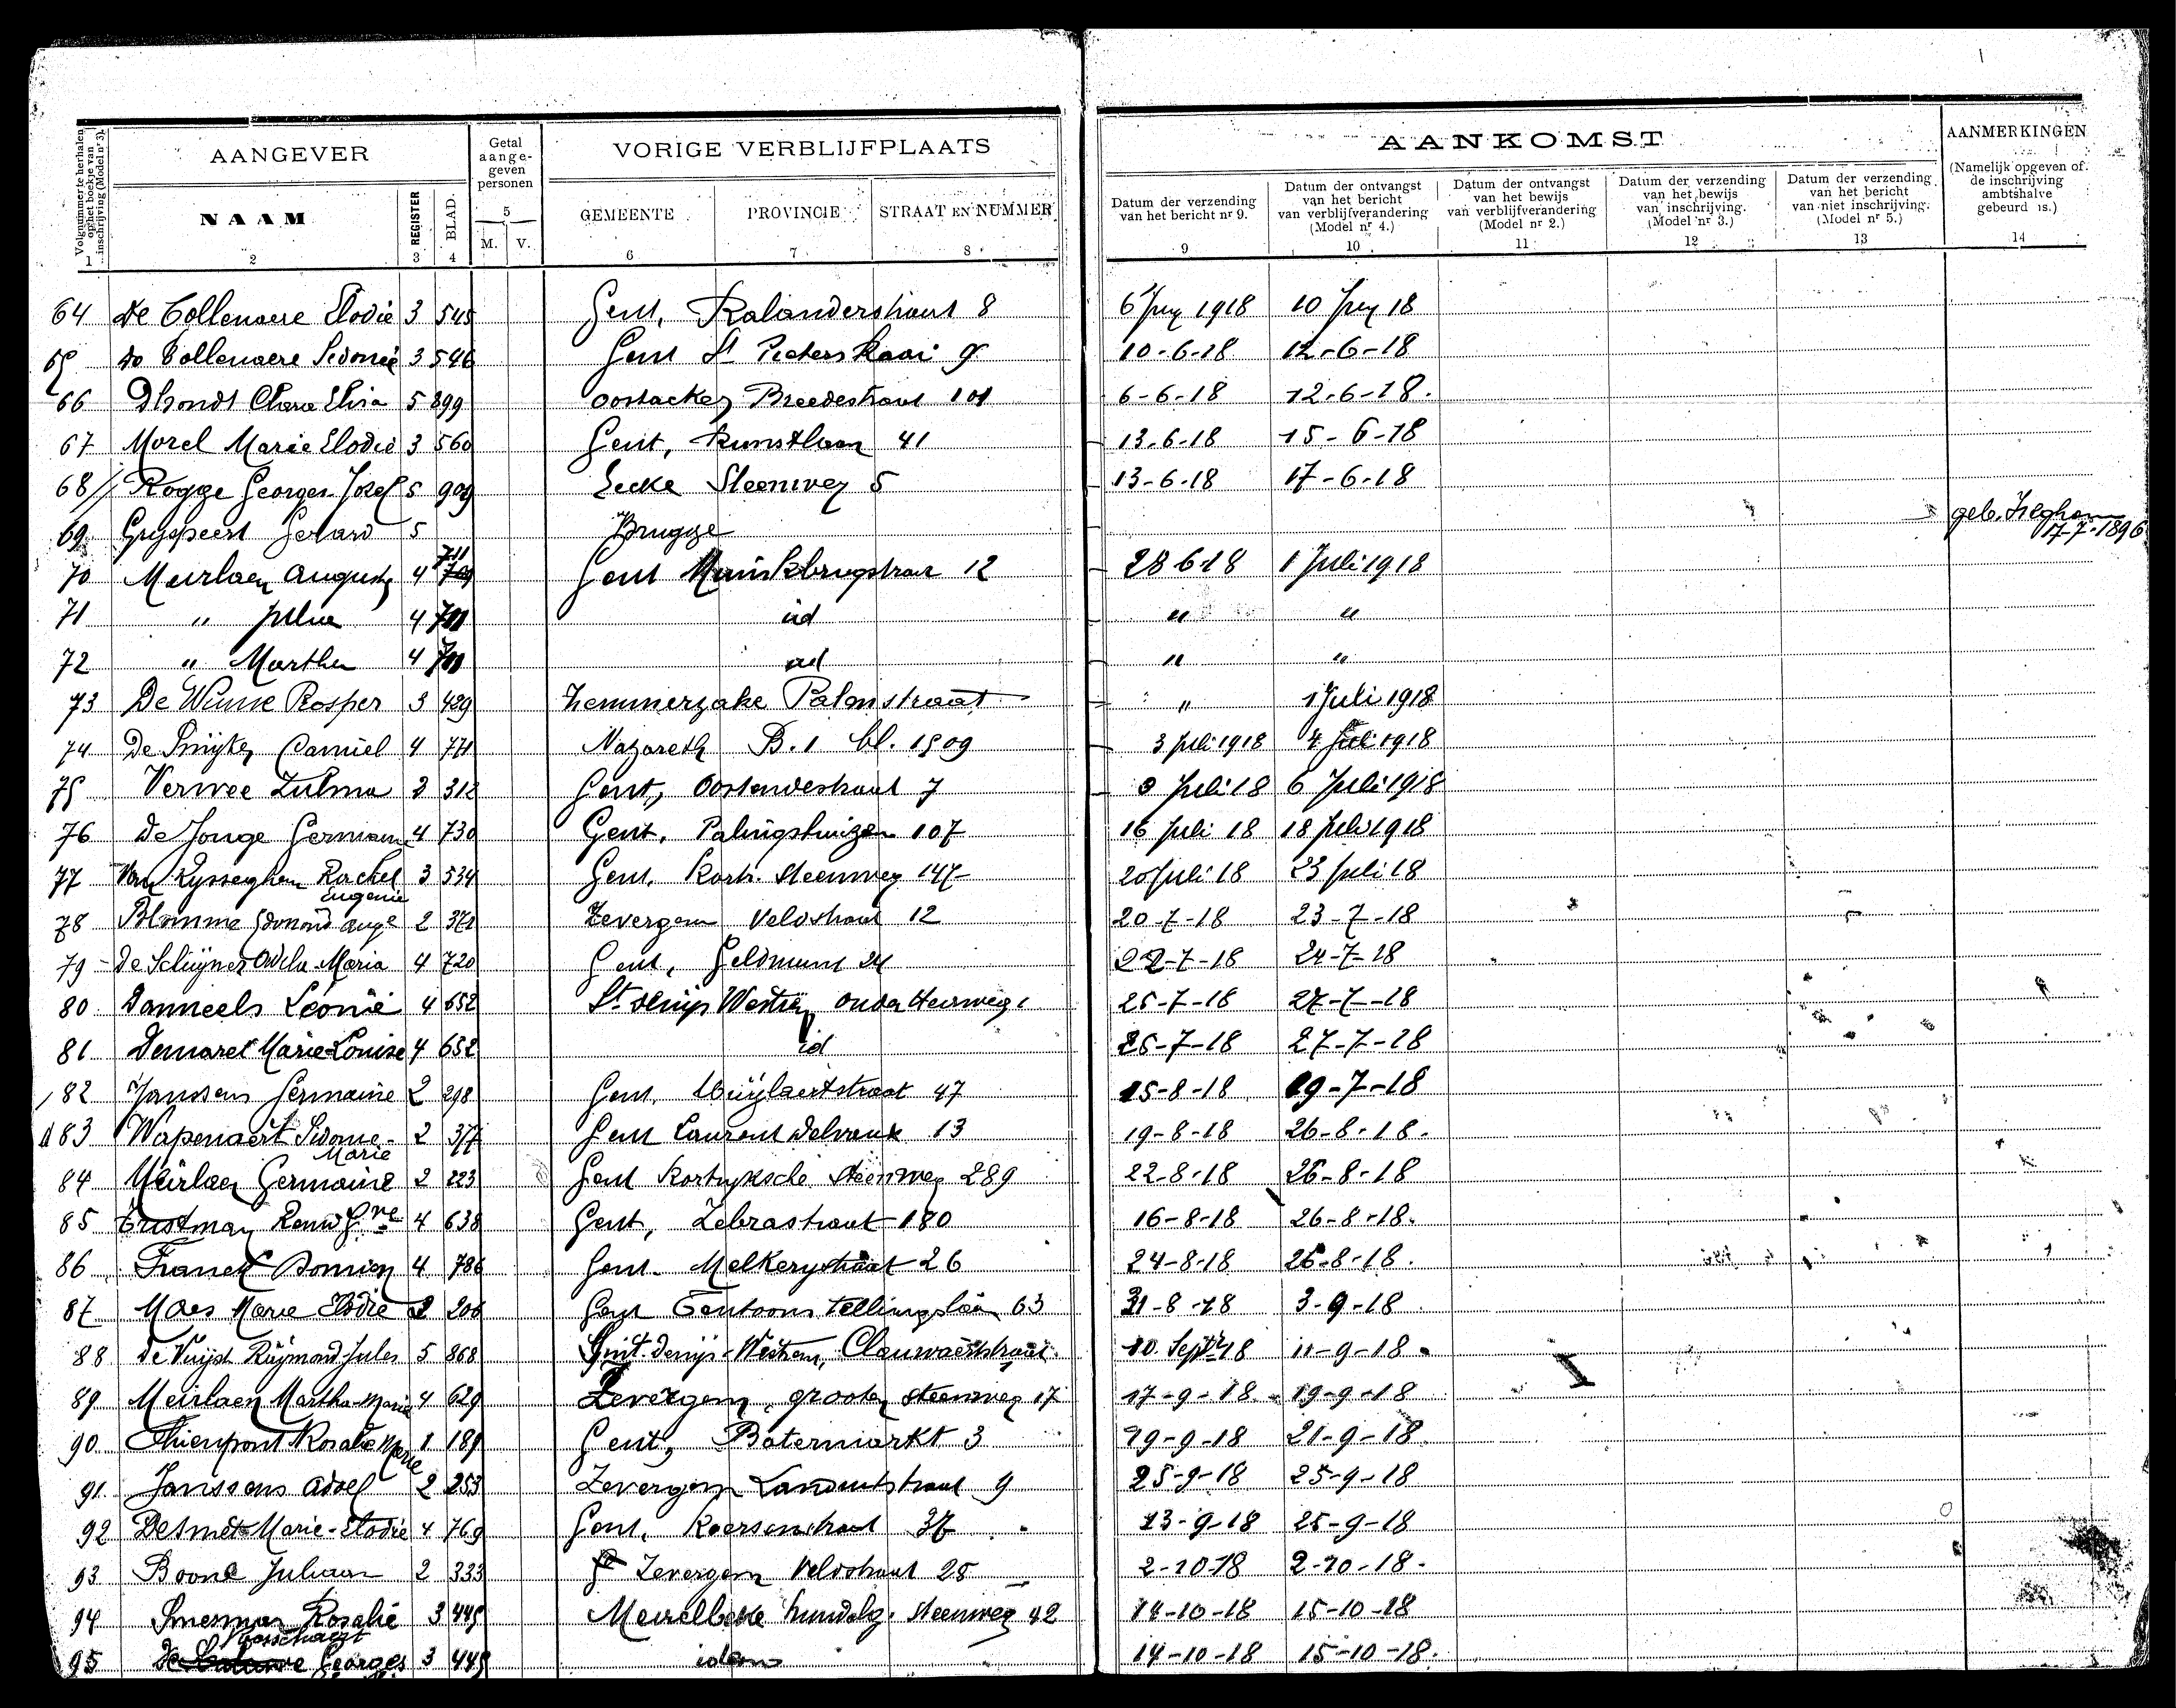 Volgnummer te herhalen op het boekje van inschrijving (Model nr 3).
AANGEVER
Getal aange- geven personen
VORIGE VERBLIJFPLAATS
AANKOMST
AANMERKINGEN
NAAM
REGISTER
BLAD.
5
M. V.
GEMEENTE
PROVINCIE
STRAAT EN NUMMER
Datum der verzending van het bericht nr 9.
Datum der ontvangst van het bericht van verblijfverandering (Model nr 4.)
Datum der ontvangst van het bewijs van verblijfverandering (Model nr 2.)
Datum der verzending van het bewijs van inschrijving. (Model nr 3.)
Datum der verzending van het bericht van niet inschrijving. (Model nr 5.)
(Namelijk opgeven of de inschrijving ambtshalve gebeurd is.)
1 2 3 4 6 7 8 9 10 11 12 13 14
64 De Collenaere Elodie 3 545 Gent, Kalanderstraat 8 6 Juny 1918 10 Juny 18
65 De Collenaere Sidonie 3 546 Gent St Pieters Kaai 9 10-6-18 12-6-18
66 Dhondt Clara Elisa 5 899 Oostacker Breedestraat 101 6-6-18 12-6-18.
67 Morel Marie Elodie 3 560 Gent, Kunstlaan 41 13-6-18 15-6-18
68 Rogge Georges Jozef 5 909 Eecke Steenweg 5 13-6-18 17-6-18
69 Gryspeert Gerard 5 Brugge geb. 17-7-1896
70 Meirlaen August 4 711 Gent Muinkbrugstraat 12 28 6 18 1 Juli 1918
71 " Julia 4 711 id " "
72 " Martha 4 711 id " "
73 De Winne Prosper 3 429 Hemmerzake Palmstraat " 1 Juli 1918
74 Camiel 4 771 Nazareth B. 1 bl. 1509 3 Juli 1918 4 Juli 1918
75 Verwee Zulma 2 312 Gent, Oostendestraat 7 3 Juli 18 6 Juli 1918
76 De Jonge Germain 4 730 Gent, Palingshuizen 107 16 Juli 18 18 Juli 1918
77 Van Rysseghem Rachel Eugenie 3 534 Gent. Kortr. Steenweg 147 20 Juli 18 23 Juli 18
78 Blomme Edmond Auge 2 371 Zevergem Veldstraat 12 20-7-18 23-7-18
79 Maria 4 720 Gent, Geldmunt 24 22-7-18 24-7-18
80 Danneels Leonie 4 652 St Denijs Westrem Oude Heirweg 1 25-7-18 27-7-18
81 Demaret Marie-Louise 4 652 id 25-7-18 27-7-18
82 Janssens Germaine 2 298 Gent. 47 15-8-18 19-7-18
83 Wapenaert Sidonie-Marie 2 377 Gent Laurent Delvaux 13 19-8-18 26-8-18.
84 Meirlaen Germaine 2 223 Gent Kortryksche Steenweg 289 22-8-18 26-8-18
85 4 638 Gent, Zebrastraat 180 16-8-18 26-8-18.
86 Franck Domien 4 786 Gent. Melkerystraat 26 24-8-18 26-8-18.
87 Maes Marie Elodie 2 206 Gent Tentoonstellingslaan 63 31-8-18 3-9-18
88 De Vuijst Raymond-Jules 5 868 Sint-Denijs-Westrem, Clauwaertstraat. 10. Septr 18 11-9-18.
89 Meirlaen Martha-Maria 4 629 Zevergem, grooten steenweg 17 17-9-18. 19-9-18
90 Thienpont Rosalie Marie 1 189 Gent, Botermarkt 3 19-9-18 21-9-18.
91 Janssens Adolf 2 253 Zevergem 9 25-9-18 25-9-18
92 Desmet Marie-Elodie 4 769 Gent, 37 23-9-18 25-9-18
93 Boone Juliaan 2 333 Zevergem Veldstraat 25 2-10-18 2-10-18.
94 Rosalie 3 445 Meirelbeke Hundelg. Steenweg 42 14-10-18 15-10-18
95 De Georges 3 445 idem 14-10-18 15-10-18.